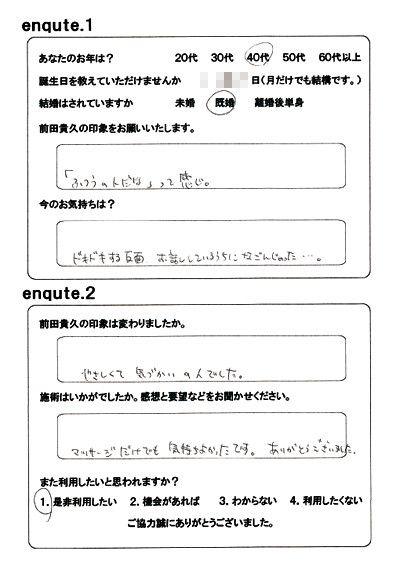 enqute.1
あなたのお年は? 20代 30代 40代 50代 60代以上
誕生日を教えていただけませんか 日(月だけでも結構です。)
結婚はされていますか 未婚 既婚 離婚後単身
前田貴久の印象をお願いいたします。
「ふつうの人だな」って感じ。
今のお気持ちは?
ドキドキする反面 お話ししているうちになごんじゃった…。
enqute.2
前田貴久の印象は変わりましたか。
やさしくて 気づかいの人でした。
施術はいかがでしたか。感想と要望などをお聞かせください。
マッサージだけでも 気持ちよかったです。 ありがとうございました。
また利用したいと思われますか?
1. 是非利用したい 2. 機会があれば 3. わからない 4. 利用したくない
ご協力誠にありがとうございました。